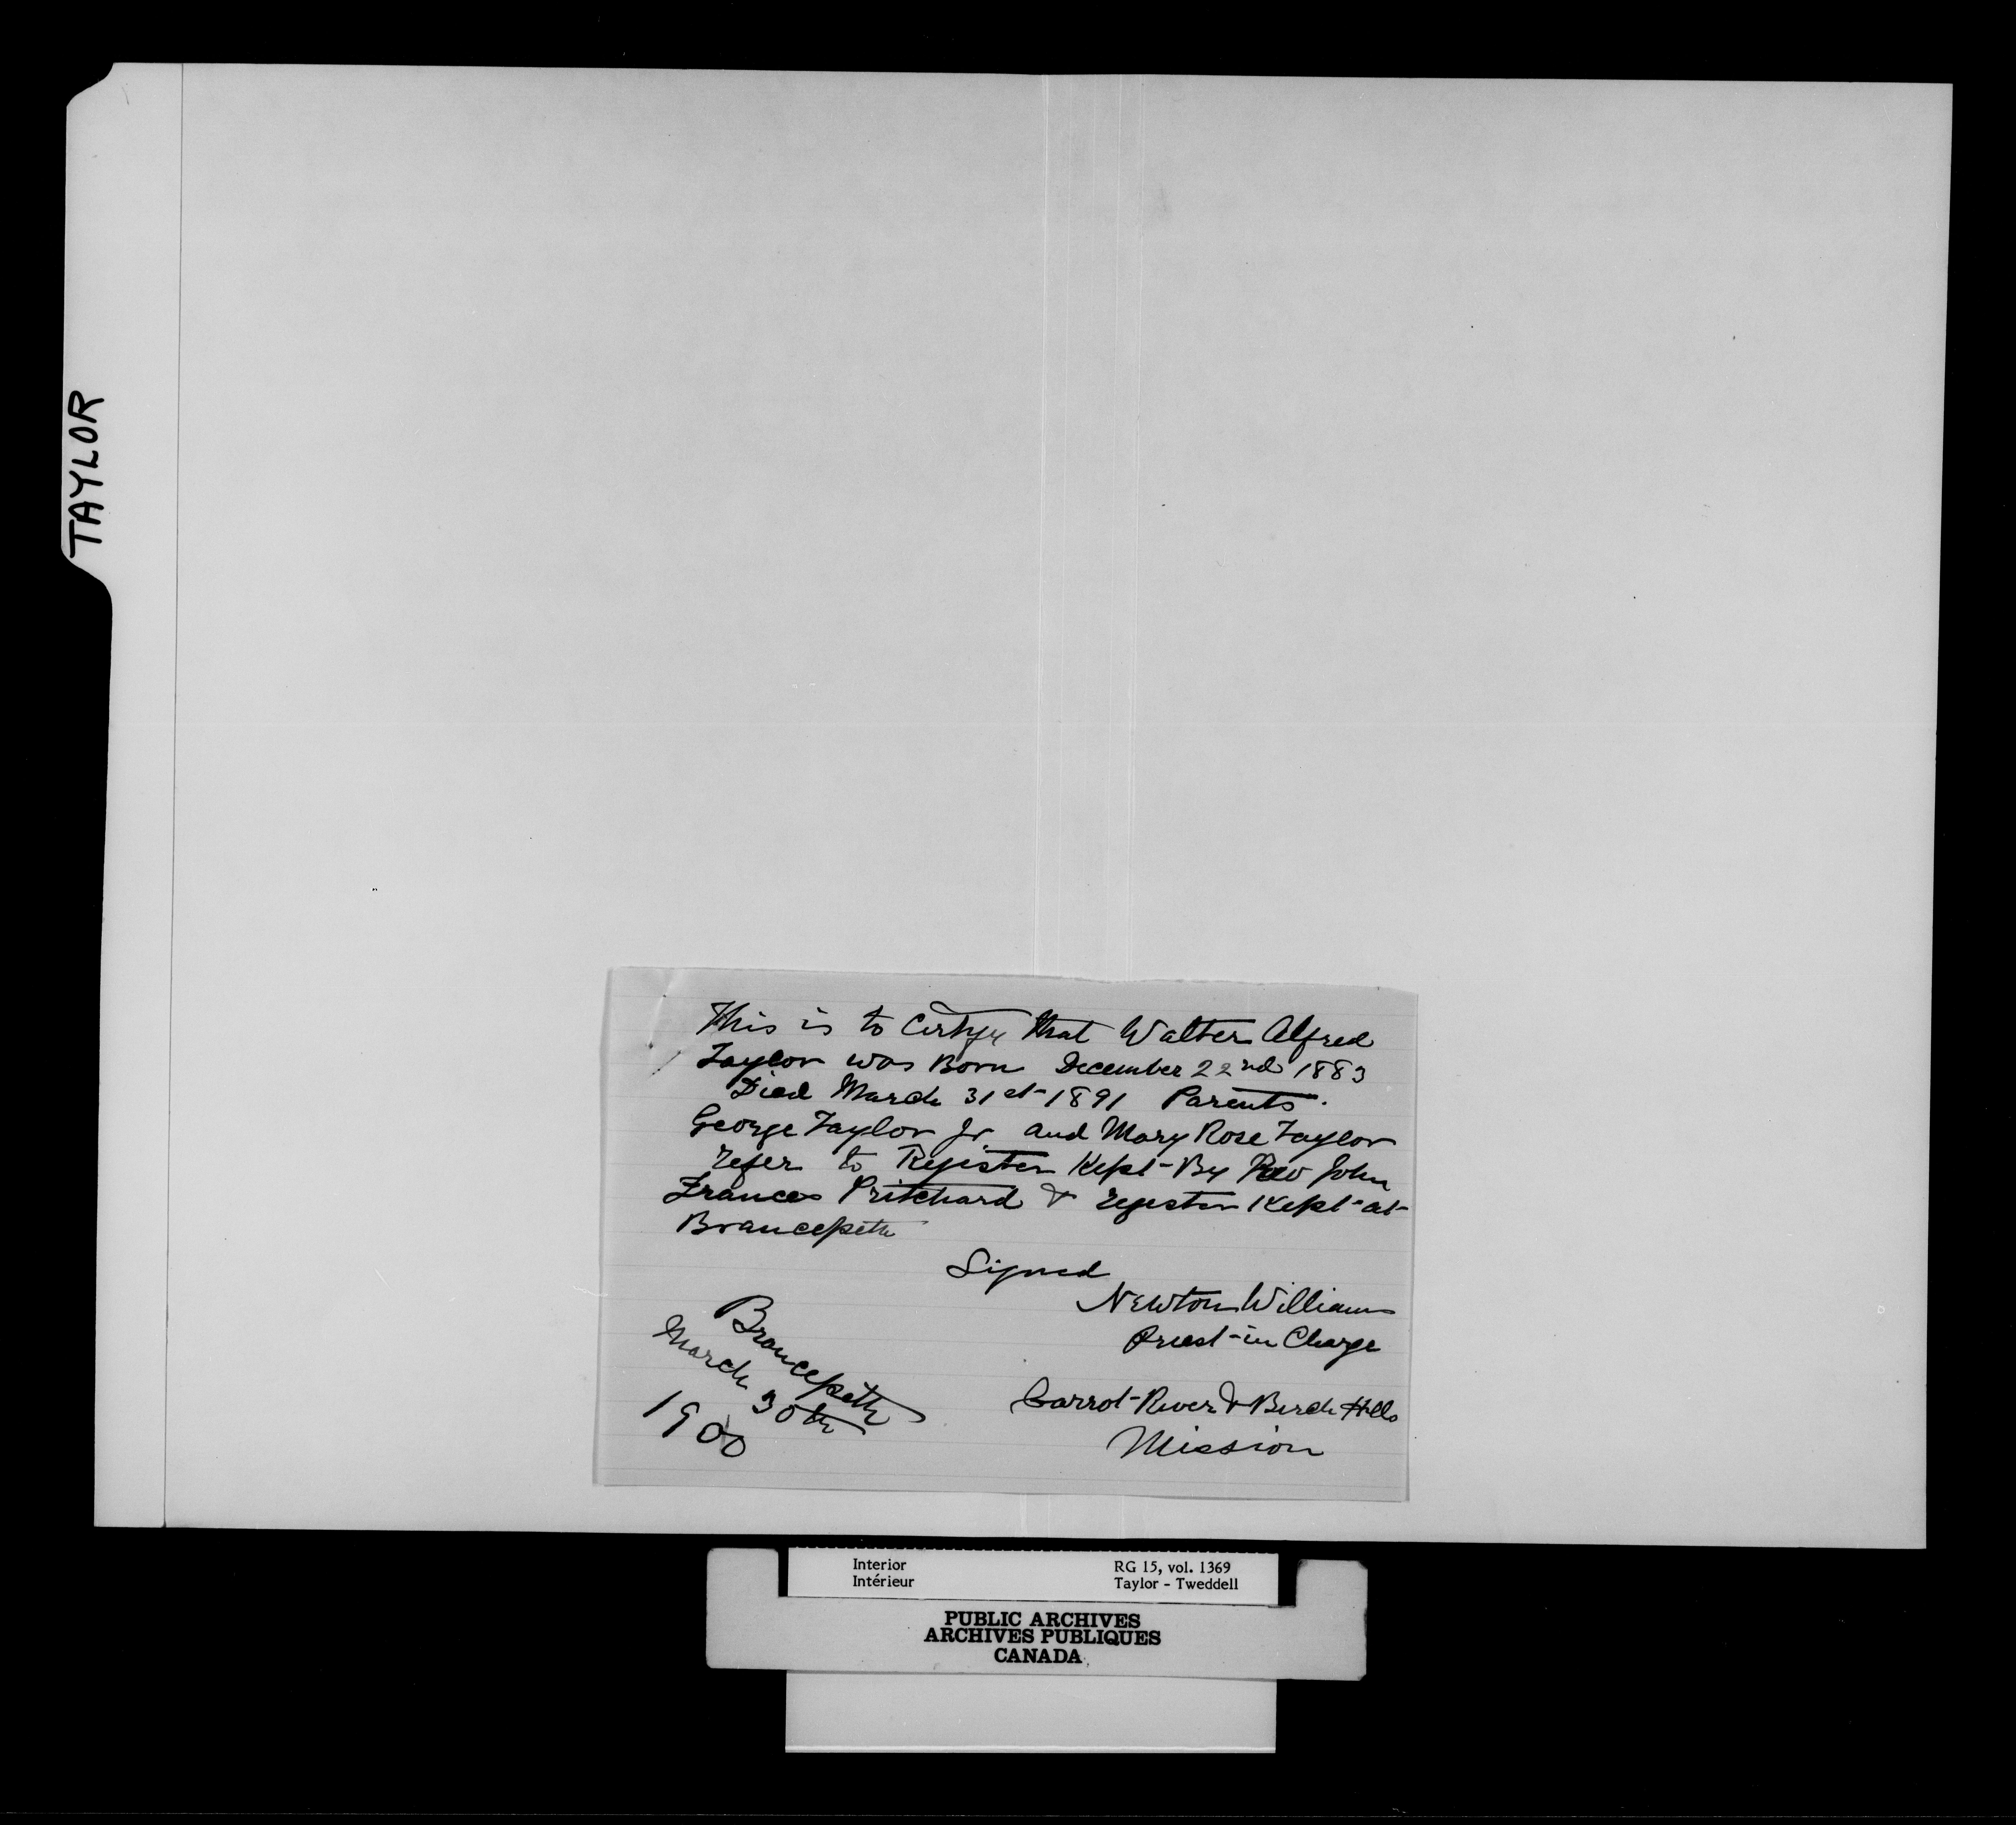 TAYLOR
This is to Certify that Walter Alfred
Taylor was Born December 22nd 1883
Died March 31st 1891 Parents.
George Taylor Jr and Mary Rose Taylor
refer to Register Kept By Rev John
Frances Pritchard & register Kept at
Brancepeth
Signed
Newton Williams
Priest in Charge
Carrot River & Birch Hills
Mission
Brancepeth
March 30th
1900
Interior
Intérieur
RG 15, vol. 1369
Taylor - Tweddell
PUBLIC ARCHIVES
ARCHIVES PUBLIQUES
CANADA